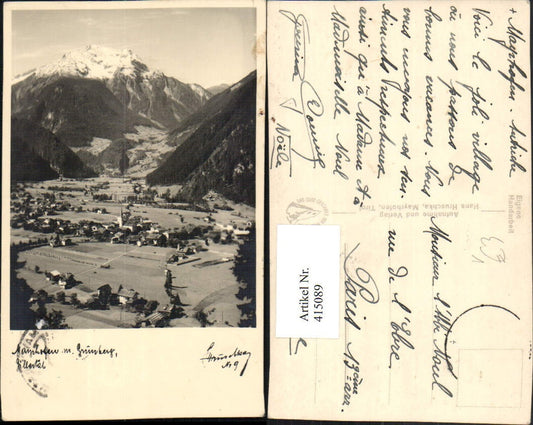 Mayrhofen m. Grünberg,
Zillertal
Nr 9
+ Mayrhofen Autriche
Voici le joli village
où nous passons de
bonnes vacances. Nous
vous envoyons nos sen-
timents respectueux
ainsi que à Madame et à
Mademoiselle Noël
Noële
Eigene
Handarbeit
Aufnahme und Verlag
Hans Hruschka, Mayrhofen, Tirol
Monsieur l'Abbé Noël
rue de l'Ebre
Paris 13ème arr.
Artikel Nr.
415089